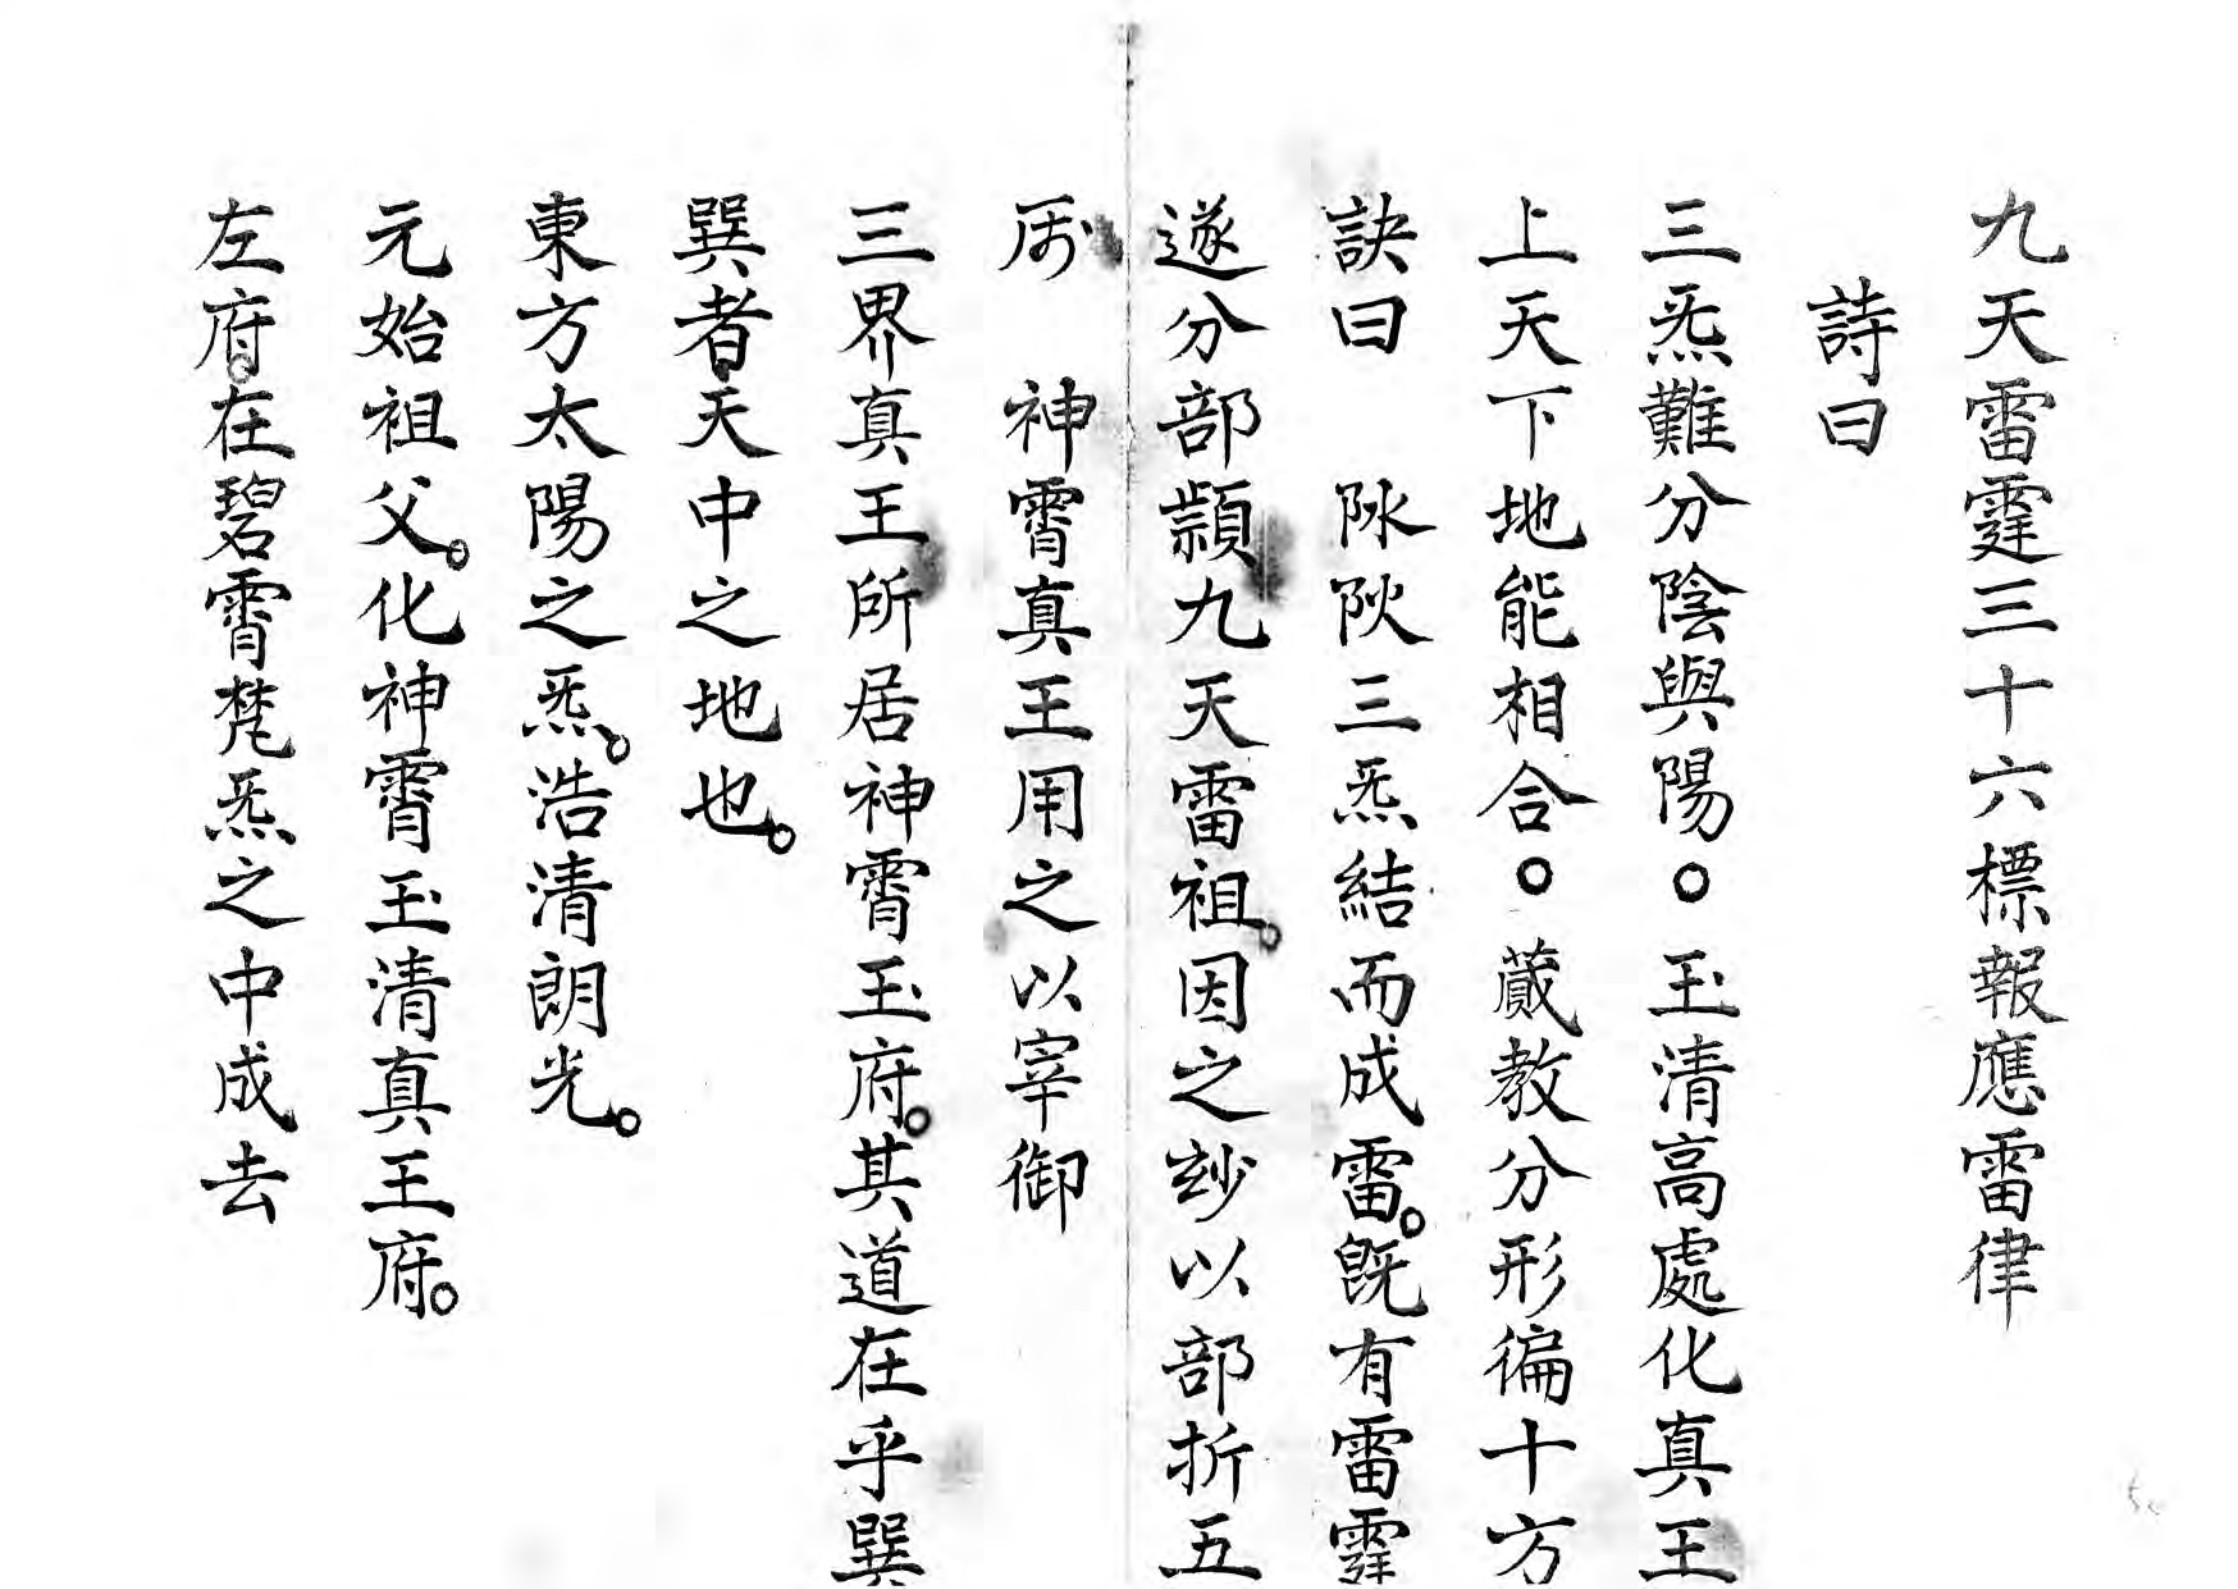 九天雷霆三十六標報應雷律
詩曰
三炁難分陰與陽。玉清高處化真王
上天下地能相合。蔵教分形徧十方
訣曰 三炁結而成雷。既有雷霆
遂分部顡九天雷祖。因之玅以部折五
神霄真王用之以宰御
三界真王所居神霄玉府。其道在乎巽
巽者天中之地也。
東方太陽之炁。浩清朗光。
元始祖父。化神霄玉清真王府。
左府。在碧霄梵炁之中成去